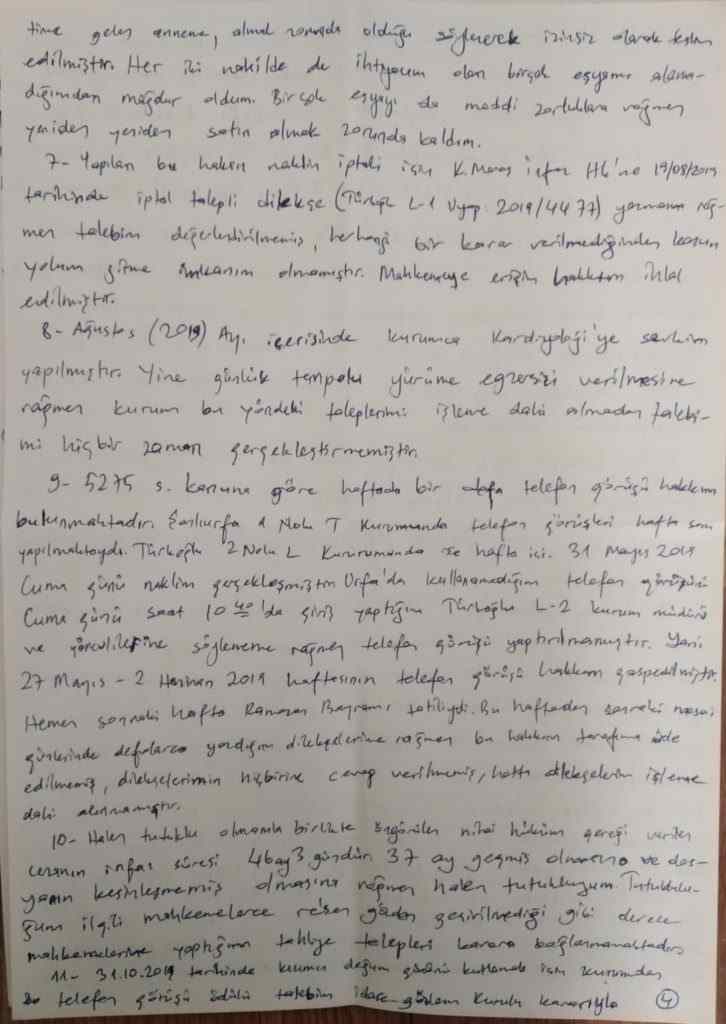 time gelen anneme, almak zorunda olduğu söylenerek izinsiz olarak teslim
edilmiştir. Her iki nakilde de ihtiyacım olan birçok eşyamı alama-
dığımdan mağdur oldum. Birçok eşyayı da maddi zorluklara rağmen
yeniden yeniden satın almak zorunda kaldım.
7- Yapılan bu haksız naklin iptali için K.Maraş İnfaz Hk'ne 19/08/2019
tarihinde iptal talepli dilekçe (Türkoğlu L-1 Uyap: 2019/4477) yazmama rağ-
men talebim değerlendirilmemiş, herhangi bir karar verilmediğinden kanun
yoluna gitme imkanım olmamıştır. Mahkemeye erişim hakkım ihlal
edilmiştir.
8- Ağustos (2019) Ayı içerisinde kurumca Kardiyoloji'ye sevkim
yapılmıştır. Yine günlük tempolu yürüme egzersizi verilmesine
rağmen kurum bu yöndeki taleplerimi işleme dahi almadan talebi-
mi hiçbir zaman gerçekleştirmemiştir.
9- 5275 s. kanuna göre haftada bir defa telefon görüşü hakkım
bulunmaktadır. Şanlıurfa 1 Nolu T Kurumunda telefon görüşleri hafta sonu
yapılmaktaydı. Türkoğlu 2 Nolu L Kururumunda ise hafta içi. 31 Mayıs 2019
Cuma günü naklim gerçekleşmiştir. Urfa'da kullanamadığım telefon görüşünü
Cuma günü saat 10 40'da giriş yaptığım Türkoğlu L-2 kurum müdürü
ve görevlilerine söylememe rağmen telefon görüşü yaptırılmamıştır. Yani
27 Mayıs - 2 Haziran 2019 haftasının telefon görüşü hakkım gaspedilmiştir.
Hemen sonraki hafta Ramazan Bayramı tatiliydi. Bu haftadan sonraki mesai
günlerinde defalarca yazdığım dilekçelerime rağmen bu hakkım tarafıma iade
edilmemiş, dilekçelerimin hiçbirine cevap verilmemiş, hatta dilekçelerim işleme
dahi alınmamıştır.
10- Halen tutuklu olmamla birlikte öngörülen nihai hüküm gereği verilen
cezanın infaz süresi 46 ay 3 gündür. 37 ay geçmiş olmasına ve dos-
yanın kesinleşmemiş olmasına rağmen halen tutukluyum. Tutuklulu-
ğum ilgili mahkemelerce re'sen gözden geçirilmediği gibi derece
mahkemelerine yaptığım tahliye talepleri karara bağlanmamaktadır.
11- 31.10.2019 tarihinde kızımın doğum gününü kutlamak için kurumdan
telefon görüşü ödülü talebim idare gözlem Kurulu kararıyla
4